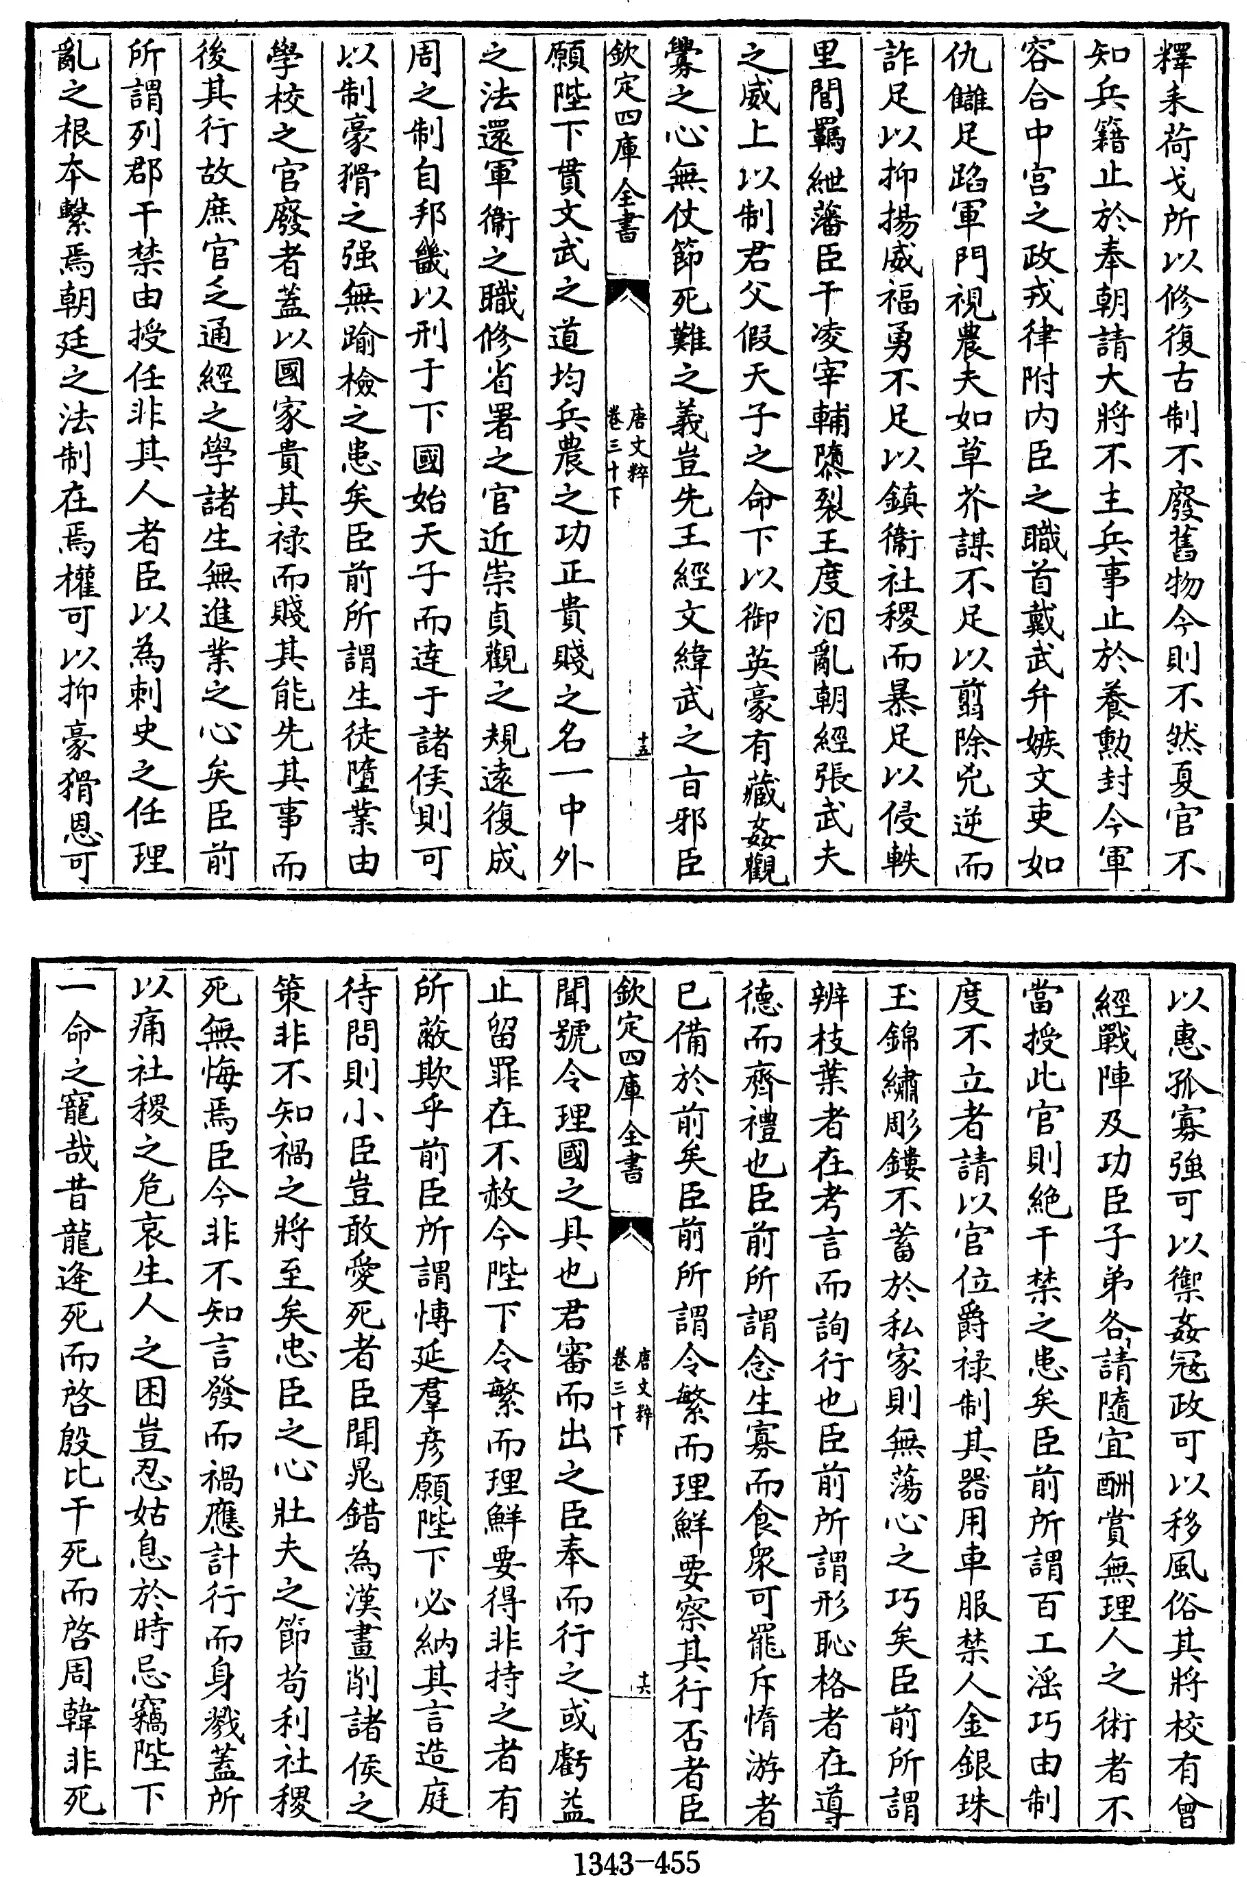 釋耒荷戈所以修復古制不廢舊物今則不然夏官不
知兵籍止於奉朝請大將不主兵事止於養勲封今軍
容合中宮之政戎律附内臣之職首戴武弁嫉文吏如
仇讎足蹈軍門視農夫如草芥謀不足以翦除兇逆而
詐足以抑揚威福勇不足以鎮衞社稷而暴足以侵軼
里閭羈紲藩臣干凌宰輔隳裂王度汨亂朝經張武夫
之威上以制君父假天子之命下以御英豪有藏姦觀
釁之心無仗節死難之義豈先王經文緯武之㫖邪臣
欽定四庫全書
唐文粹
卷三十下
十五
願陛下貫文武之道均兵農之功正貴賤之名一中外
之法還軍衞之職修省署之官近崇貞觀之規遠復成
周之制自邦畿以刑于下國始天子而達于諸侯則可
以制豪猾之强無踰檢之患矣臣前所謂生徒墮業由
學校之官廢者蓋以國家貴其禄而賤其能先其事而
後其行故庶官乏通經之學諸生無進業之心矣臣前
所謂列郡干禁由授任非其人者臣以為刺史之任理
亂之根本繫焉朝廷之法制在焉權可以抑豪猾恩可
以惠孤寡強可以禦姦冦政可以移風俗其將校有曾
經戰陣及功臣子弟各請隨宜酬賞無理人之術者不
當授此官則絶干禁之患矣臣前所謂百工滛巧由制
度不立者請以官位爵禄制其器用車服禁人金銀珠
玉錦繡彫鏤不蓄於私家則無蕩心之巧矣臣前所謂
辨枝葉者在考言而詢行也臣前所謂形恥格者在導
德而齊禮也臣前所謂念生寡而食衆可罷斥惰游者
已備於前矣臣前所謂令繁而理鮮要察其行否者臣
欽定四庫全書
唐文粹
卷三十下
十六
聞號令理國之具也君審而出之臣奉而行之或虧益
止留罪在不赦今陛下令繁而理鮮要得非持之者有
所蔽欺乎前臣所謂愽延羣彦願陛下必納其言造庭
待問則小臣豈敢愛死者臣聞晁錯為漢畫削諸侯之
策非不知禍之將至矣忠臣之心壯夫之節苟利社稷
死無悔焉臣今非不知言發而禍應計行而身戮蓋所
以痛社稷之危哀生人之困豈忍姑息於時忌竊陛下
一命之寵哉昔龍逄死而啓殷比干死而啓周韓非死
1343-455